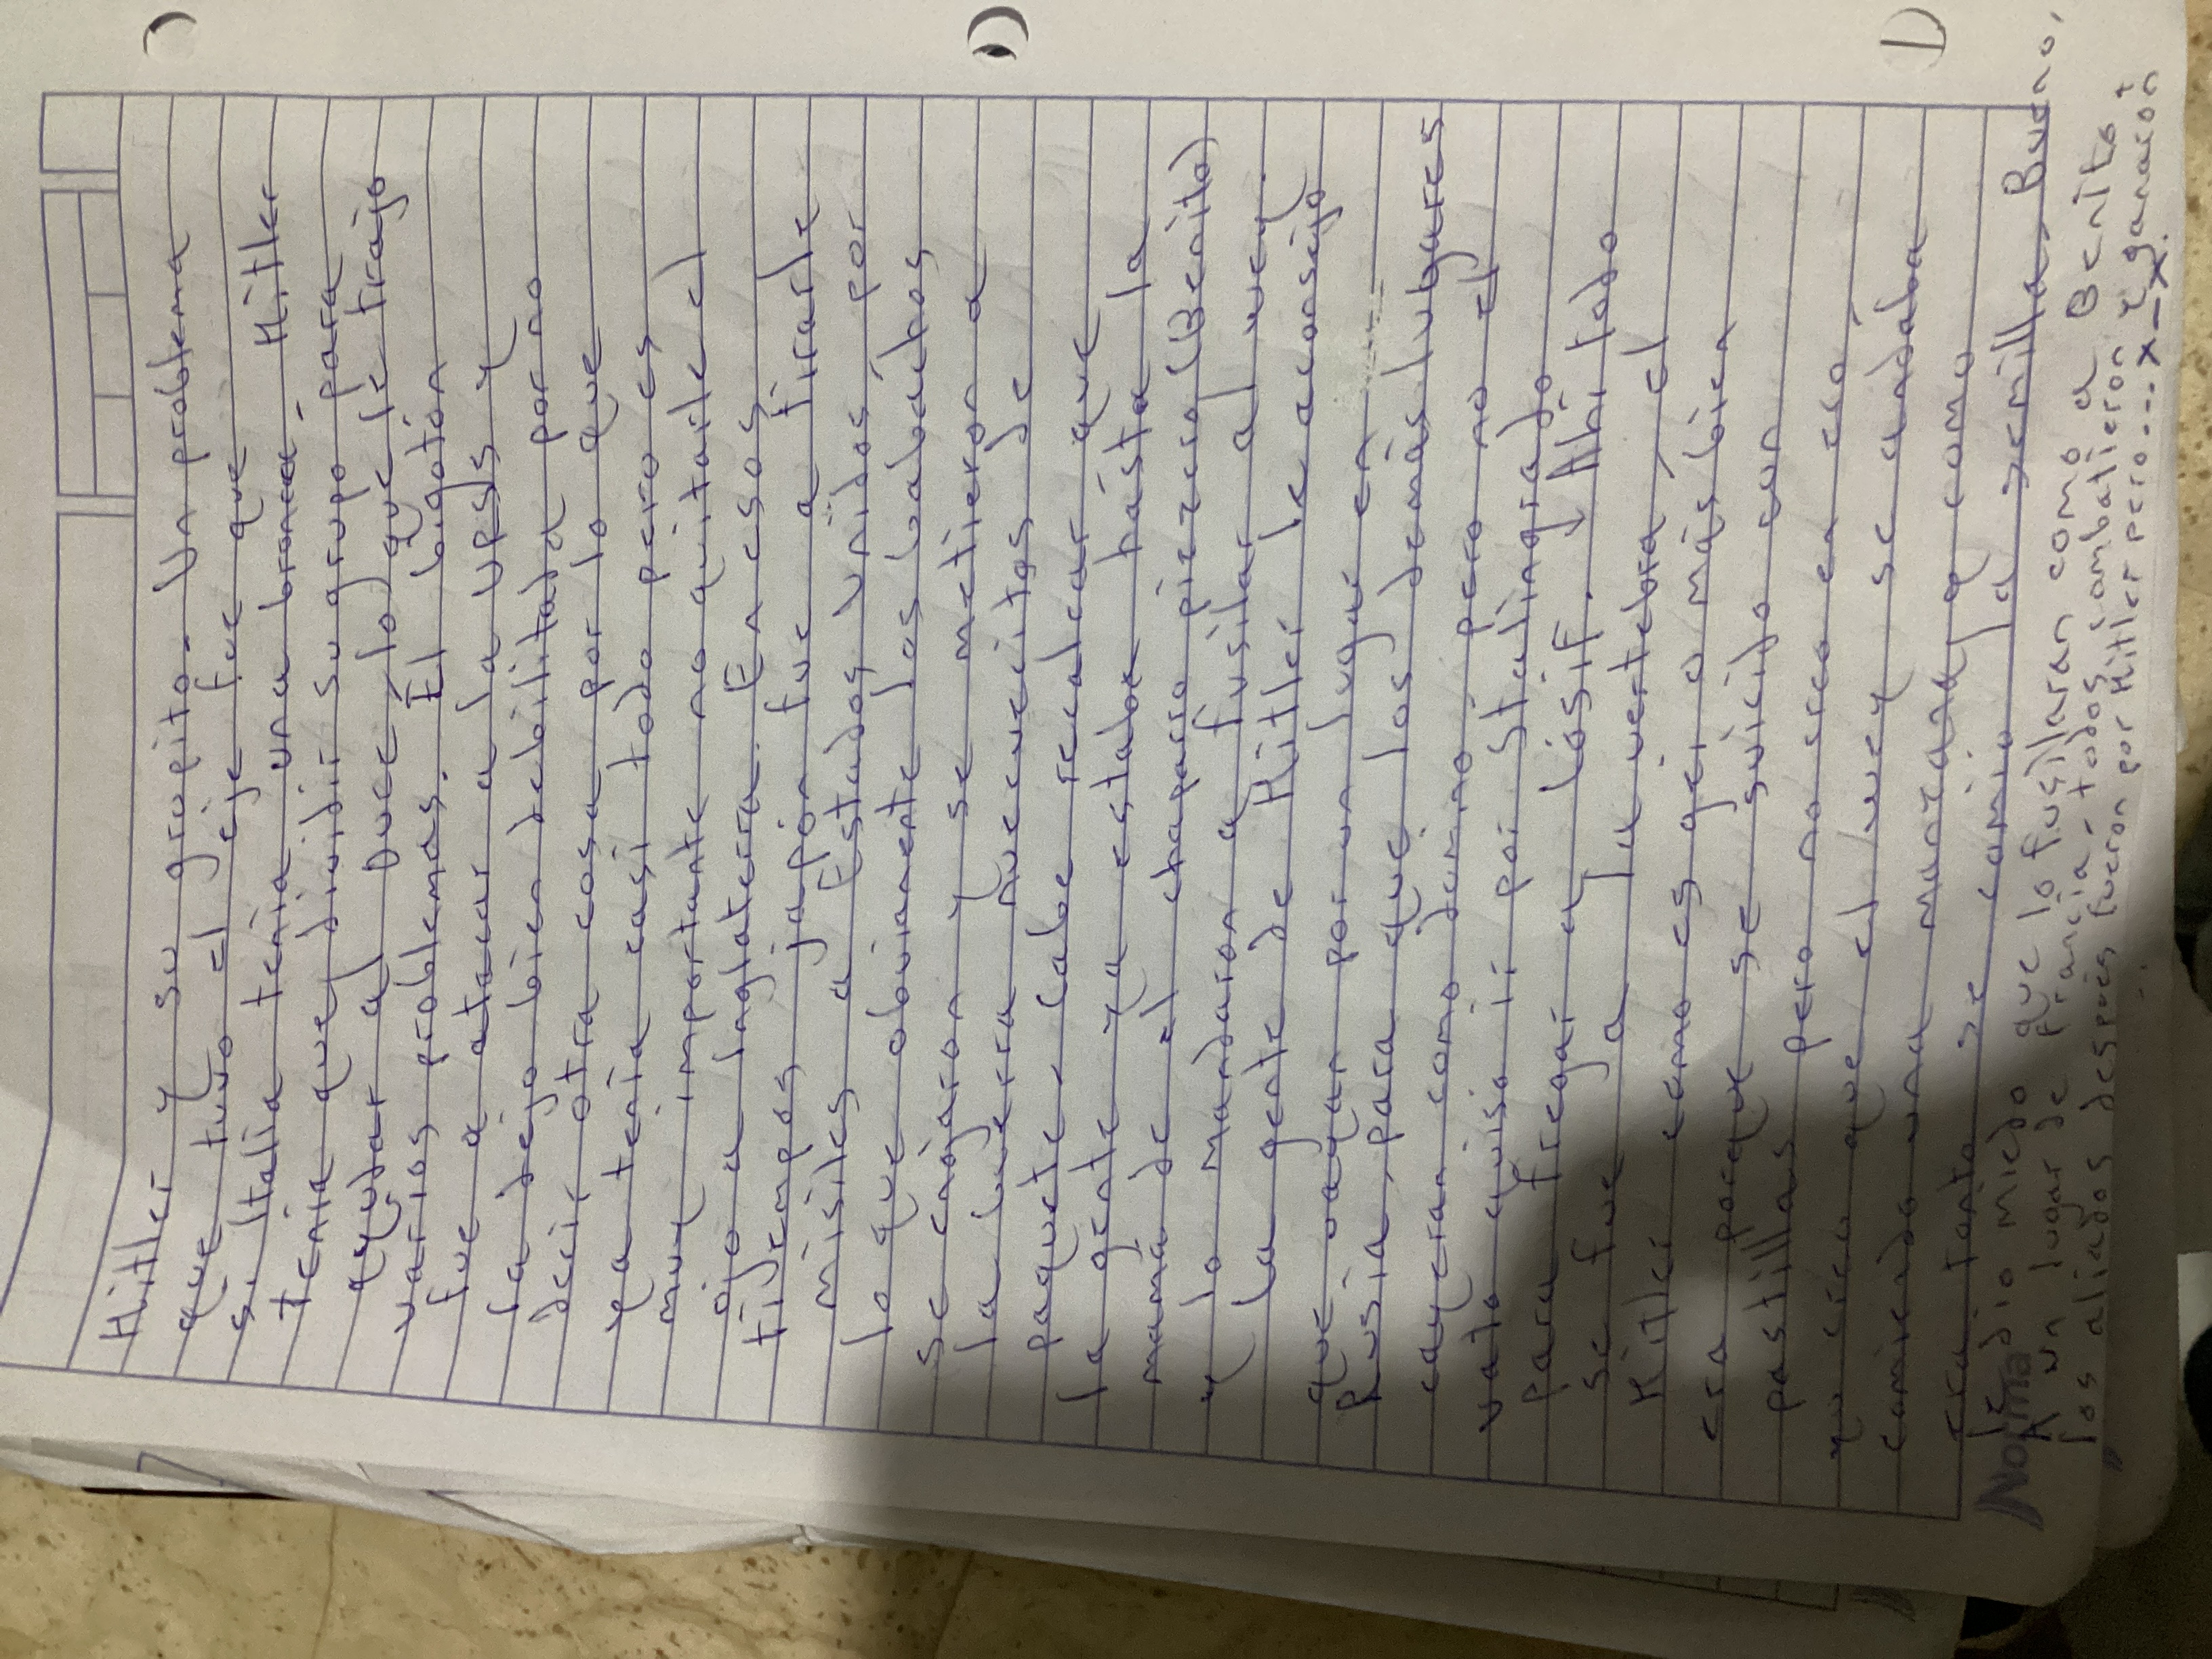 Hitler y su grupito- Un problema
que tuvo el eje fue que
si Italia tenia una bronca- Hitler
tenia que dividir su grupo para
ayudar al Duce, lo que le trajo
varios problemas. El bigotón
fue a atacar a la UPSS y
la dejo bien debilitada por no
decir otra cosa por lo que
ya tenia casi todo pero es
muy importante no quitarle el
ojo a Inglaterra. En esos
tiempos japón fue a tirarle
misiles a Estados Unidos por
lo que obviamente los babachos
se enojaron y se metieron a
la guerra. Nuevecitos de
paquete. Cabe recalcar que
la gente ya estaba hasta la
mamá de el chaparro piezcio (Benito)
y lo mandaron a fusilar al wey.
La gente de Hitler le aconsejo
que vayan por un lugar en
Rusia, para que los demás lugares
cayeran como dominó, pero no el
vato quiso ir por Stalingrado
para fregar a Iósif. ↓ Ahí todo
se fue a la vertebra, el
Hitler como es ger o más bien
era porque se suicido con
pastillas pero no creo en eso,
yo creo que el wey se andaba
comiendo una manzana y como
era tonto se comio la semilla. Bueno,
le dio miedo que lo fusilaran como a Benito
A un lugar de Francia- todos combatieron +
los aliados después fueron por Hitler pero... x_x. y ganaron
Norma